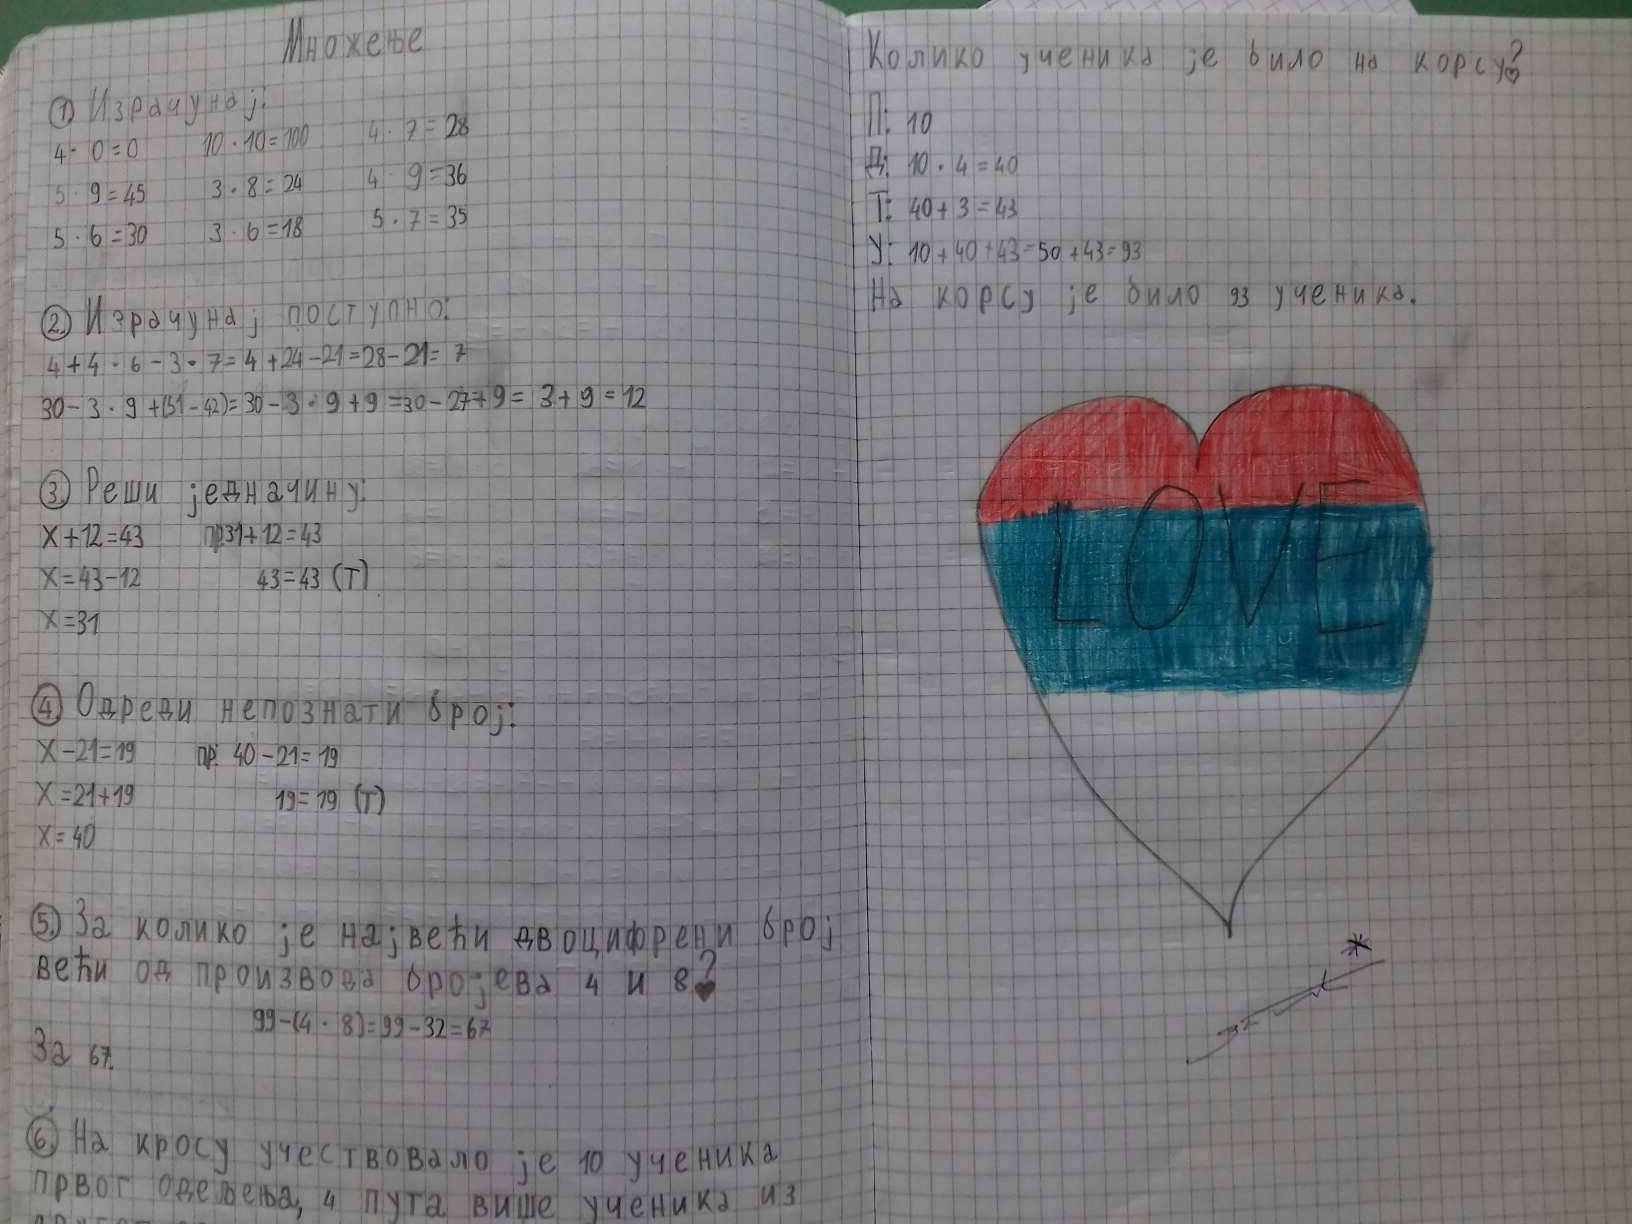 Множење
1 Израчунај:
4 · 0 = 0 10 · 10 = 100 4 · 7 = 28
5 · 9 = 45 3 · 8 = 24 4 · 9 = 36
5 · 6 = 30 3 · 6 = 18 5 · 7 = 35
2. Израчунај поступно:
4 + 4 · 6 - 3 · 7 = 4 + 24 - 21 = 28 - 21 = 7
30 - 3 · 9 + (51 - 42) = 30 - 3 · 9 + 9 = 30 - 27 + 9 = 3 + 9 = 12
3. Реши једначину:
X + 12 = 43 пр 31 + 12 = 43
X = 43 - 12 43 = 43 (T)
X = 31
4. Одреди непознати број:
X - 21 = 19 пр. 40 - 21 = 19
X = 21 + 19 19 = 19 (T)
X = 40
5. За колико је највећи двоцифрени број
већи од производа бројева 4 и 8?
99 - (4 · 8) = 99 - 32 = 67
За 67.
6. На кросу учествовало је 10 ученика
првог одељења, 4 пута више ученика из
Колико ученика је било на корсу?
П: 10
Д: 10 · 4 = 40
Т: 40 + 3 = 43
У: 10 + 40 + 43 = 50 + 43 = 93
На корсу је било 93 ученика.
LOVE